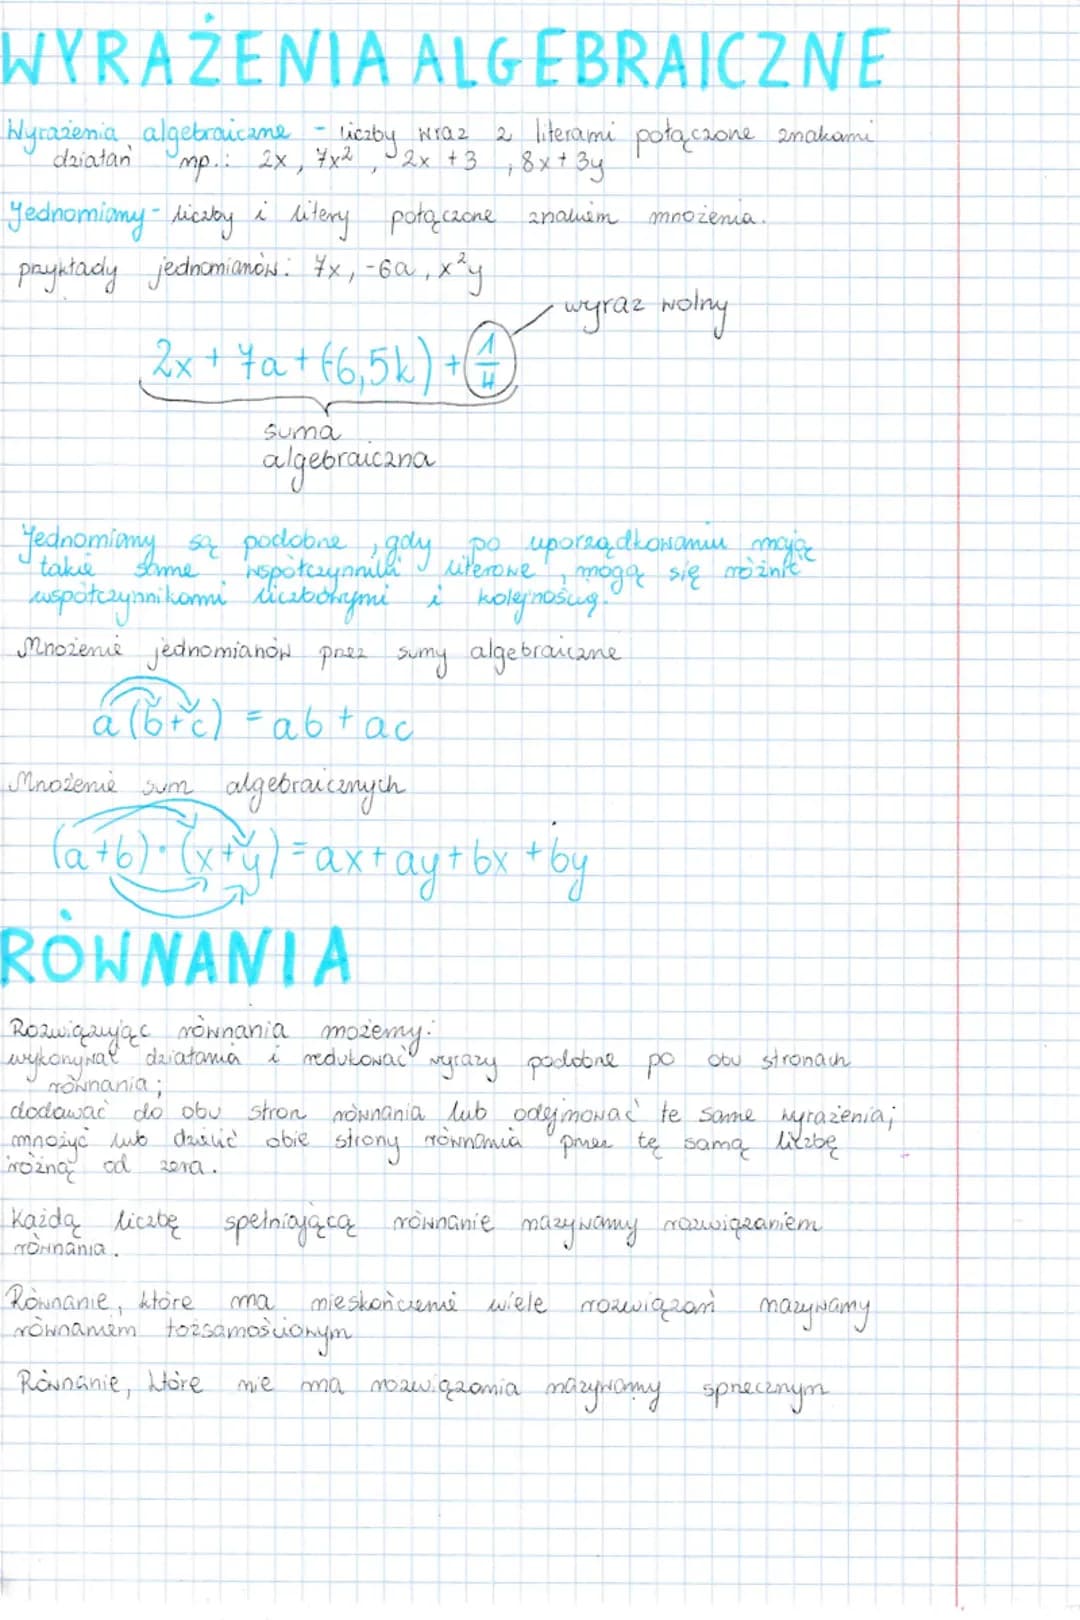 WYRAŻENIA ALGEBRAICZNE
Wyrażenia algebraiczne - liczby wraz z literami połączone znakami
działań np.: 2x, 7x², 2x + 3, 8x + 3y
Jednomiany - liczby i litery połączone znakiem mnożenia.
przykłady jednomianów: 7x, -6a, x²y
wyraz wolny
2x + 7a + (-6,5k) + 1/4
suma
algebraiczna
Jednomiany są podobne, gdy po uporządkowaniu mają
takie same współczynniki literowe, mogą się różnić
współczynnikami liczbowymi i kolejnością.
Mnożenie jednomianów przez sumy algebraiczne
a(b+c) = ab + ac
Mnożenie sum algebraicznych
(a+b)·(x+y) = ax + ay + bx + by
RÓWNANIA
Rozwiązując równania możemy:
wykonywać działania i redukować wyrazy podobne po obu stronach
równania;
dodawać do obu stron równania lub odejmować te same wyrażenia;
mnożyć lub dzielić obie strony równania przez tę samą liczbę
różną od zera.
Każdą liczbę spełniającą równanie nazywamy rozwiązaniem
równania.
Równanie, które ma nieskończenie wiele rozwiązań nazywamy
równaniem tożsamościowym
Równanie, które nie ma rozwiązania nazywamy sprzecznym